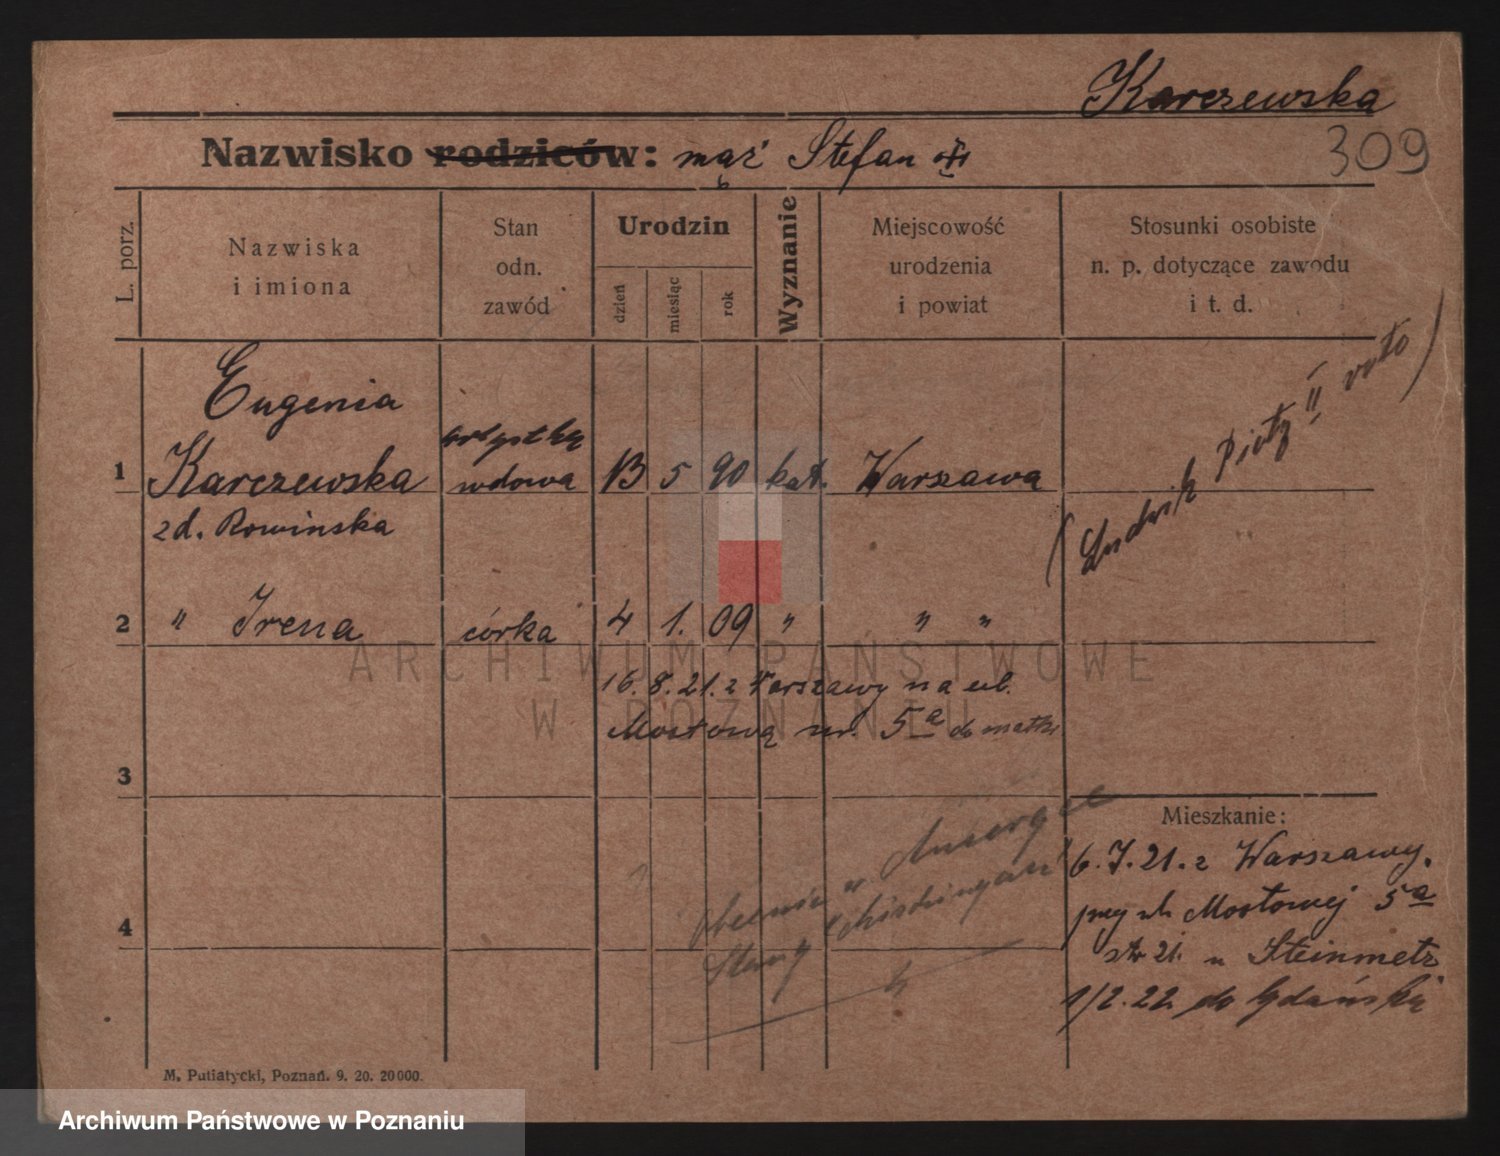 Karczewska
309
Nazwisko rodziców: mąż Stefan
L. porz.
Nazwiska
i imiona
Stan
odn.
zawód
Urodzin
dzień
miesiąc
rok
Wyznanie
Miejscowość
urodzenia
i powiat
Stosunki osobiste
n. p. dotyczące zawodu
i t. d.
Eugenia
1 Karczewska
zd. Rowińska
artystka
wdowa
13 5 90 kat. Warszawa
(Ludwik Piotz II voto)
2 " Irena córka 4 1. 09 " " "
16. 8. 21. z Warszawy na ul.
Mostową nr. 5a do matki
3
4
obecnie w
Mieszkanie:
6. 7. 21. z Warszawy.
przy ul. Mostowej 5a
str 21. u Steinmetz
1/2. 22. do Gdańska
M. Putiatycki, Poznań. 9. 20. 20000.
ARCHIWUM PAŃSTWOWE
W POZNANIU
Archiwum Państwowe w Poznaniu